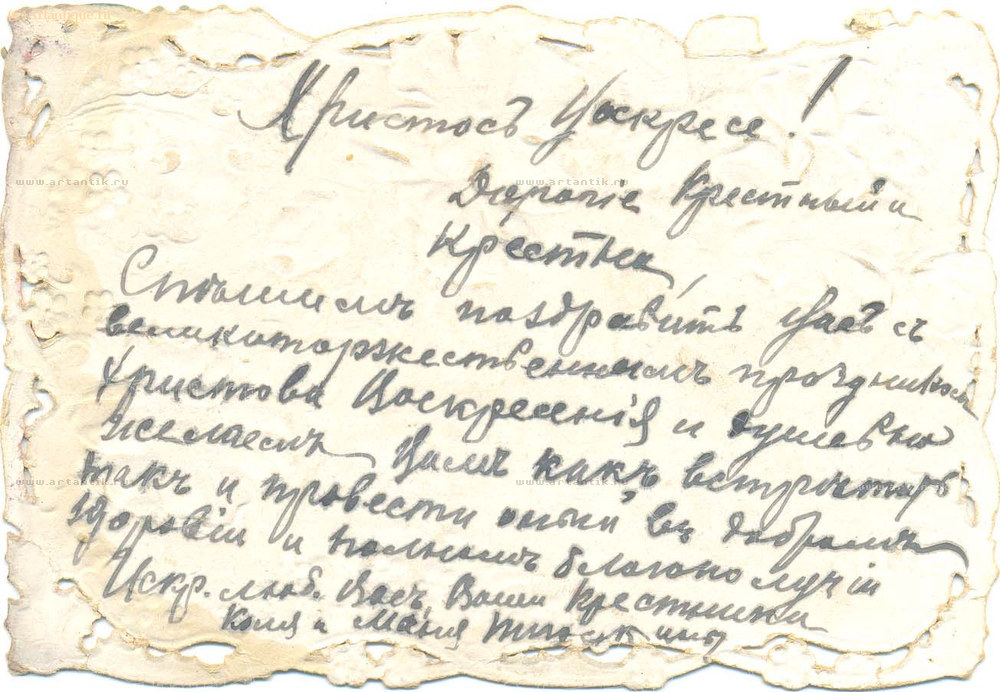 Христосъ Воскресе!
Дорогіе Крестный и
Крестна,
Спѣшимъ поздравить Васъ съ
великоторжественнымъ праздникомъ
Христова Воскресенія и душевно
желаемъ Вамъ какъ встрѣтить
такъ и провести оный въ добромъ
здоровіи и полномъ благополучіи
Искр. люб. Васъ, Ваши Крестники
Коля и Маня
www.artantik.ru
www.artantik.ru
www.artantik.ru
www.artantik.ru